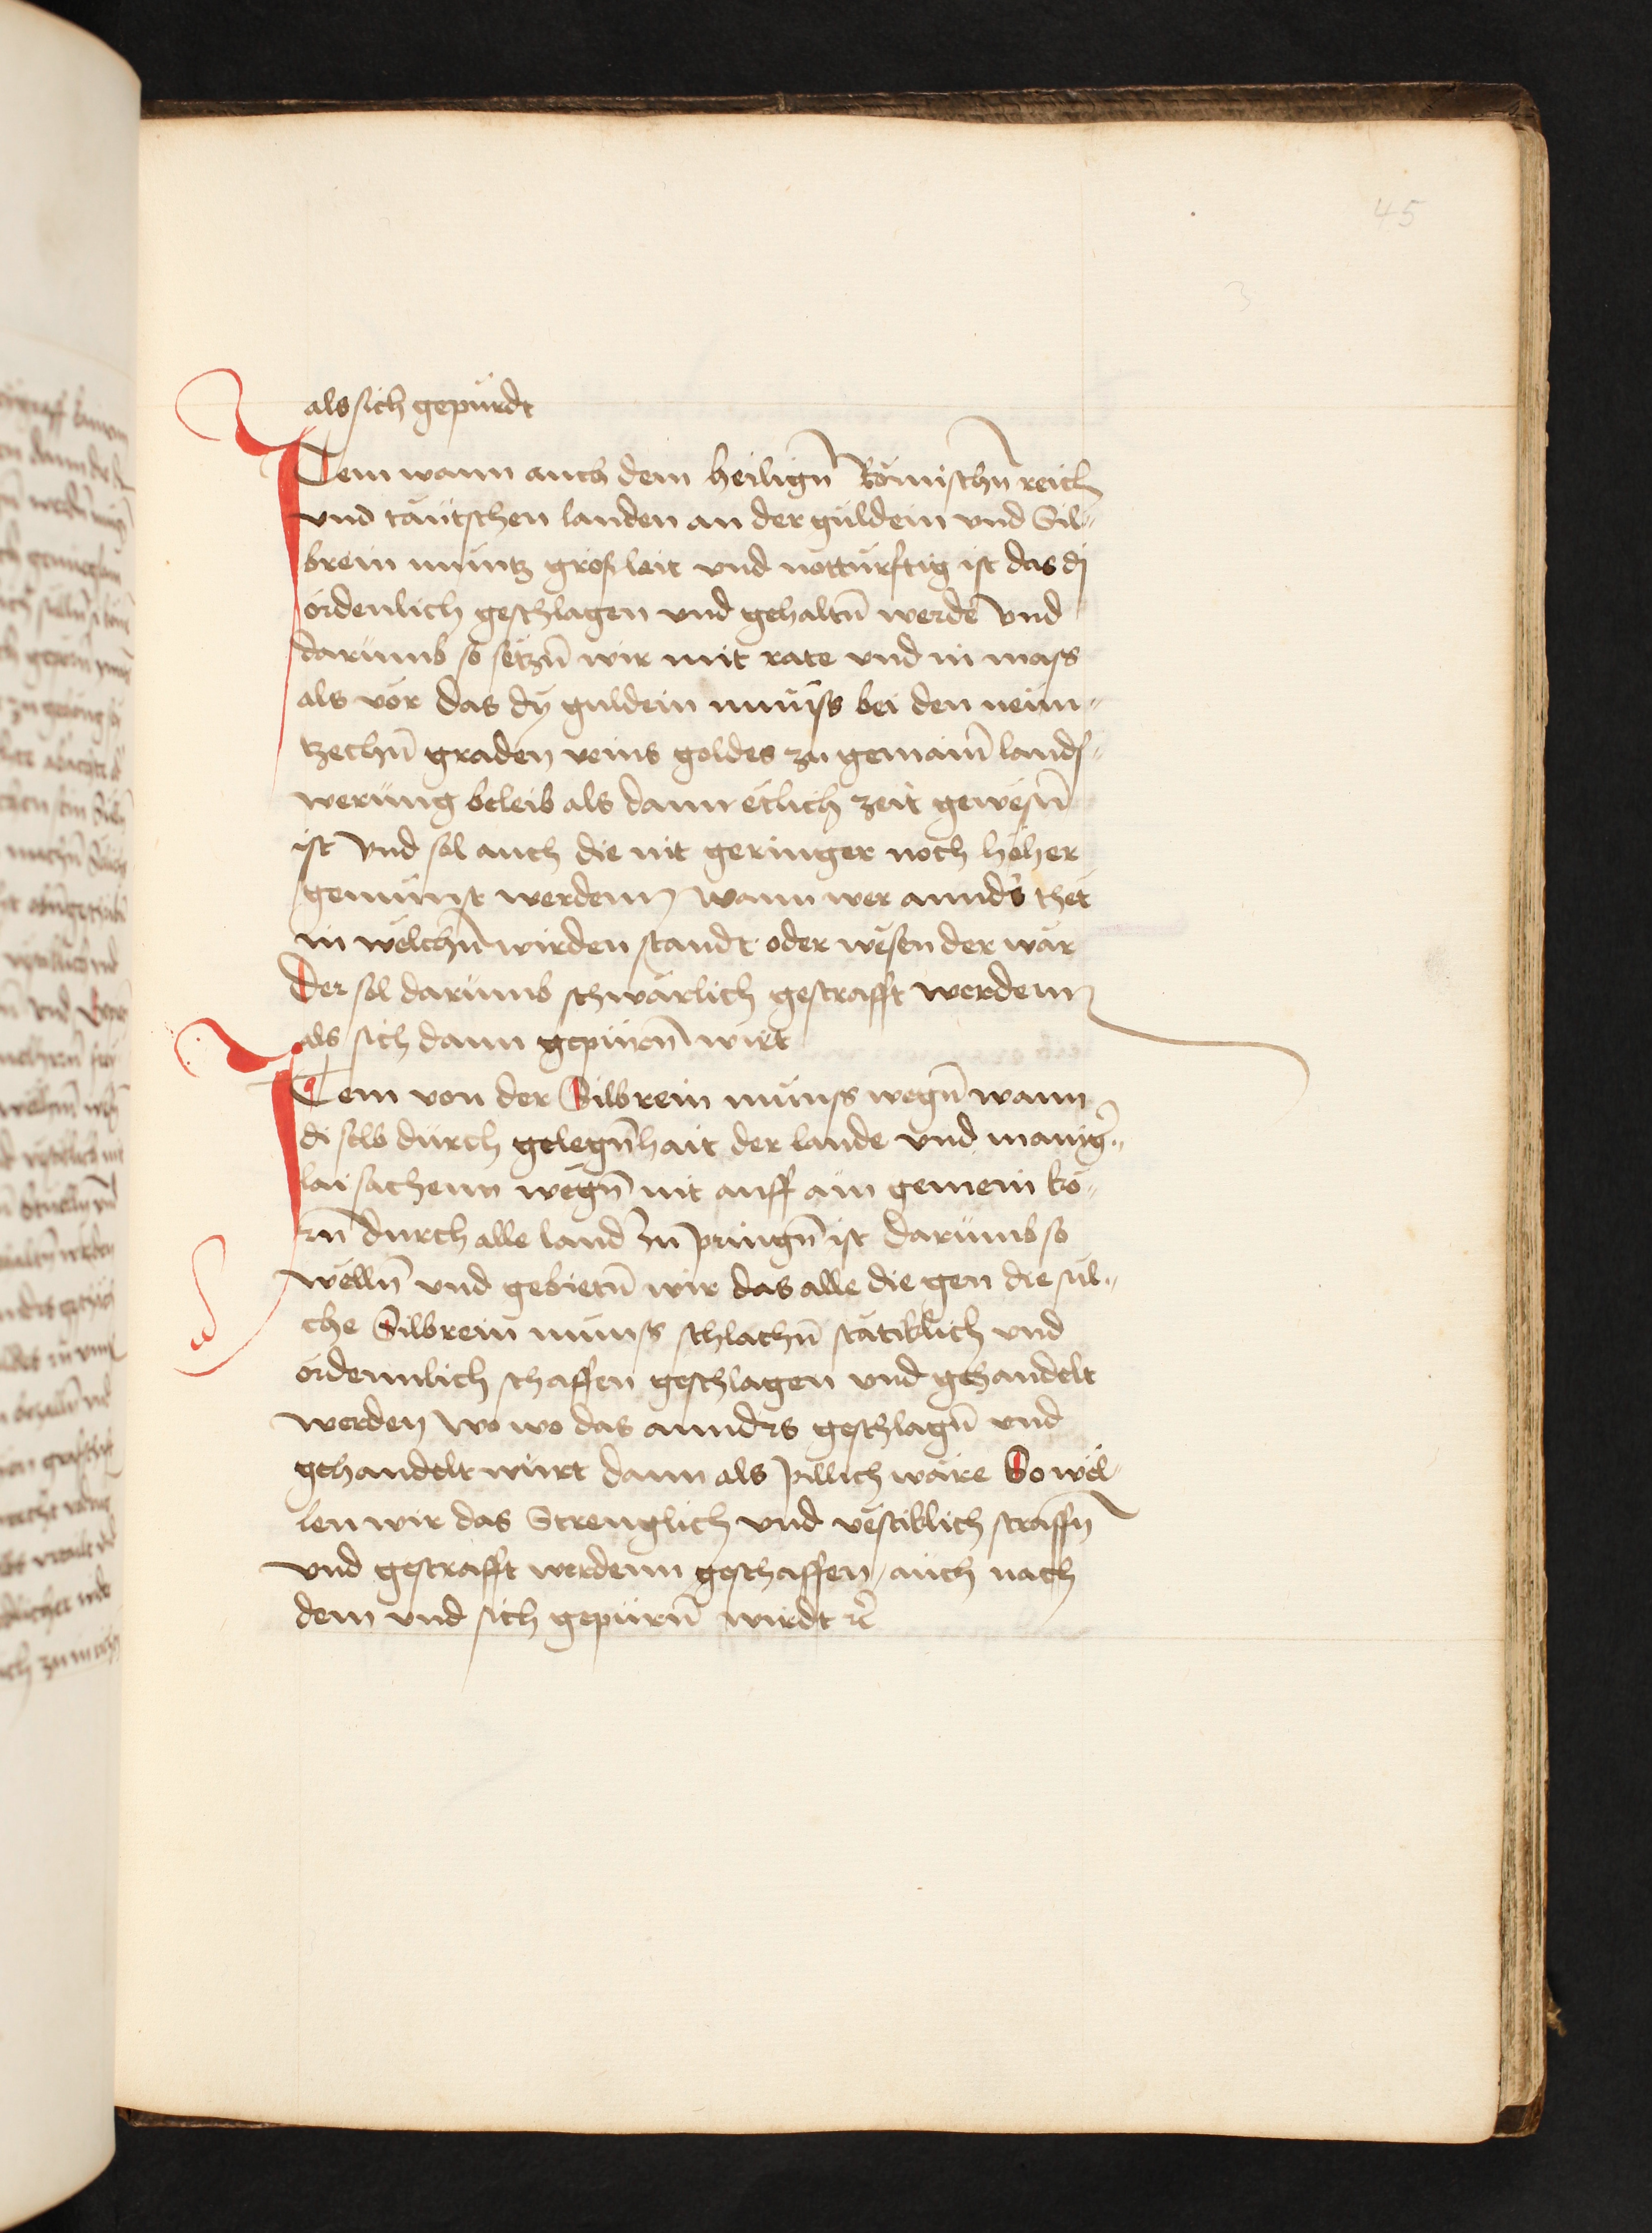 45
3
als sich gepürdt
ITem wann auch dem heiligñ Römischñ reich
vnd täutschen landen an der guldein vnd Sil⸗
brein müntz groß leit vnd notturftig ist das dj
ordenlich geschlagen vnd gehaltñ werdē vnd
darumb so setzñ wir mit rate vnd in mass
als vor das dÿ guldein münss bei den neün⸗
tzechñ graden veins goldes zu gemainr̄ lands⸗
werung beleib als dann etlich zeit gewesñ
ist vnd sol auch die nit geringer noch höher
gemünst werdenn wann wer annds̄ thet
in welchñ wirden standt oder wesen der wär
der sol darumb schwärlich gestrafft werdenn
als sich dann gepürnñ wirt
ITem von der Silbrein münss wegñ wann
di selb dürch gelegñhait der lande vnd maniḡ⸗
lai sachenn wegñ nit auff ain gemein kö⸗
rñ durch alle land zu pringñ ist darumb so
wellñ vnd gebietñ wir das alle die gen die sül⸗
che Silbrein münss schlachñ stätiklich vnd
ordennlich schaffen geschlagen vnd gehandelt
werden wo wo das annders geschlagñ vnd
gehandelt würt dann als pillich wäre So wöl⸗
len wir das Strenglich vnd vestiklich straffñ
vnd gestrafft werdenn geschaffen / auch nach
dem vnd sich gepürnñ wirdt ꝛc̄